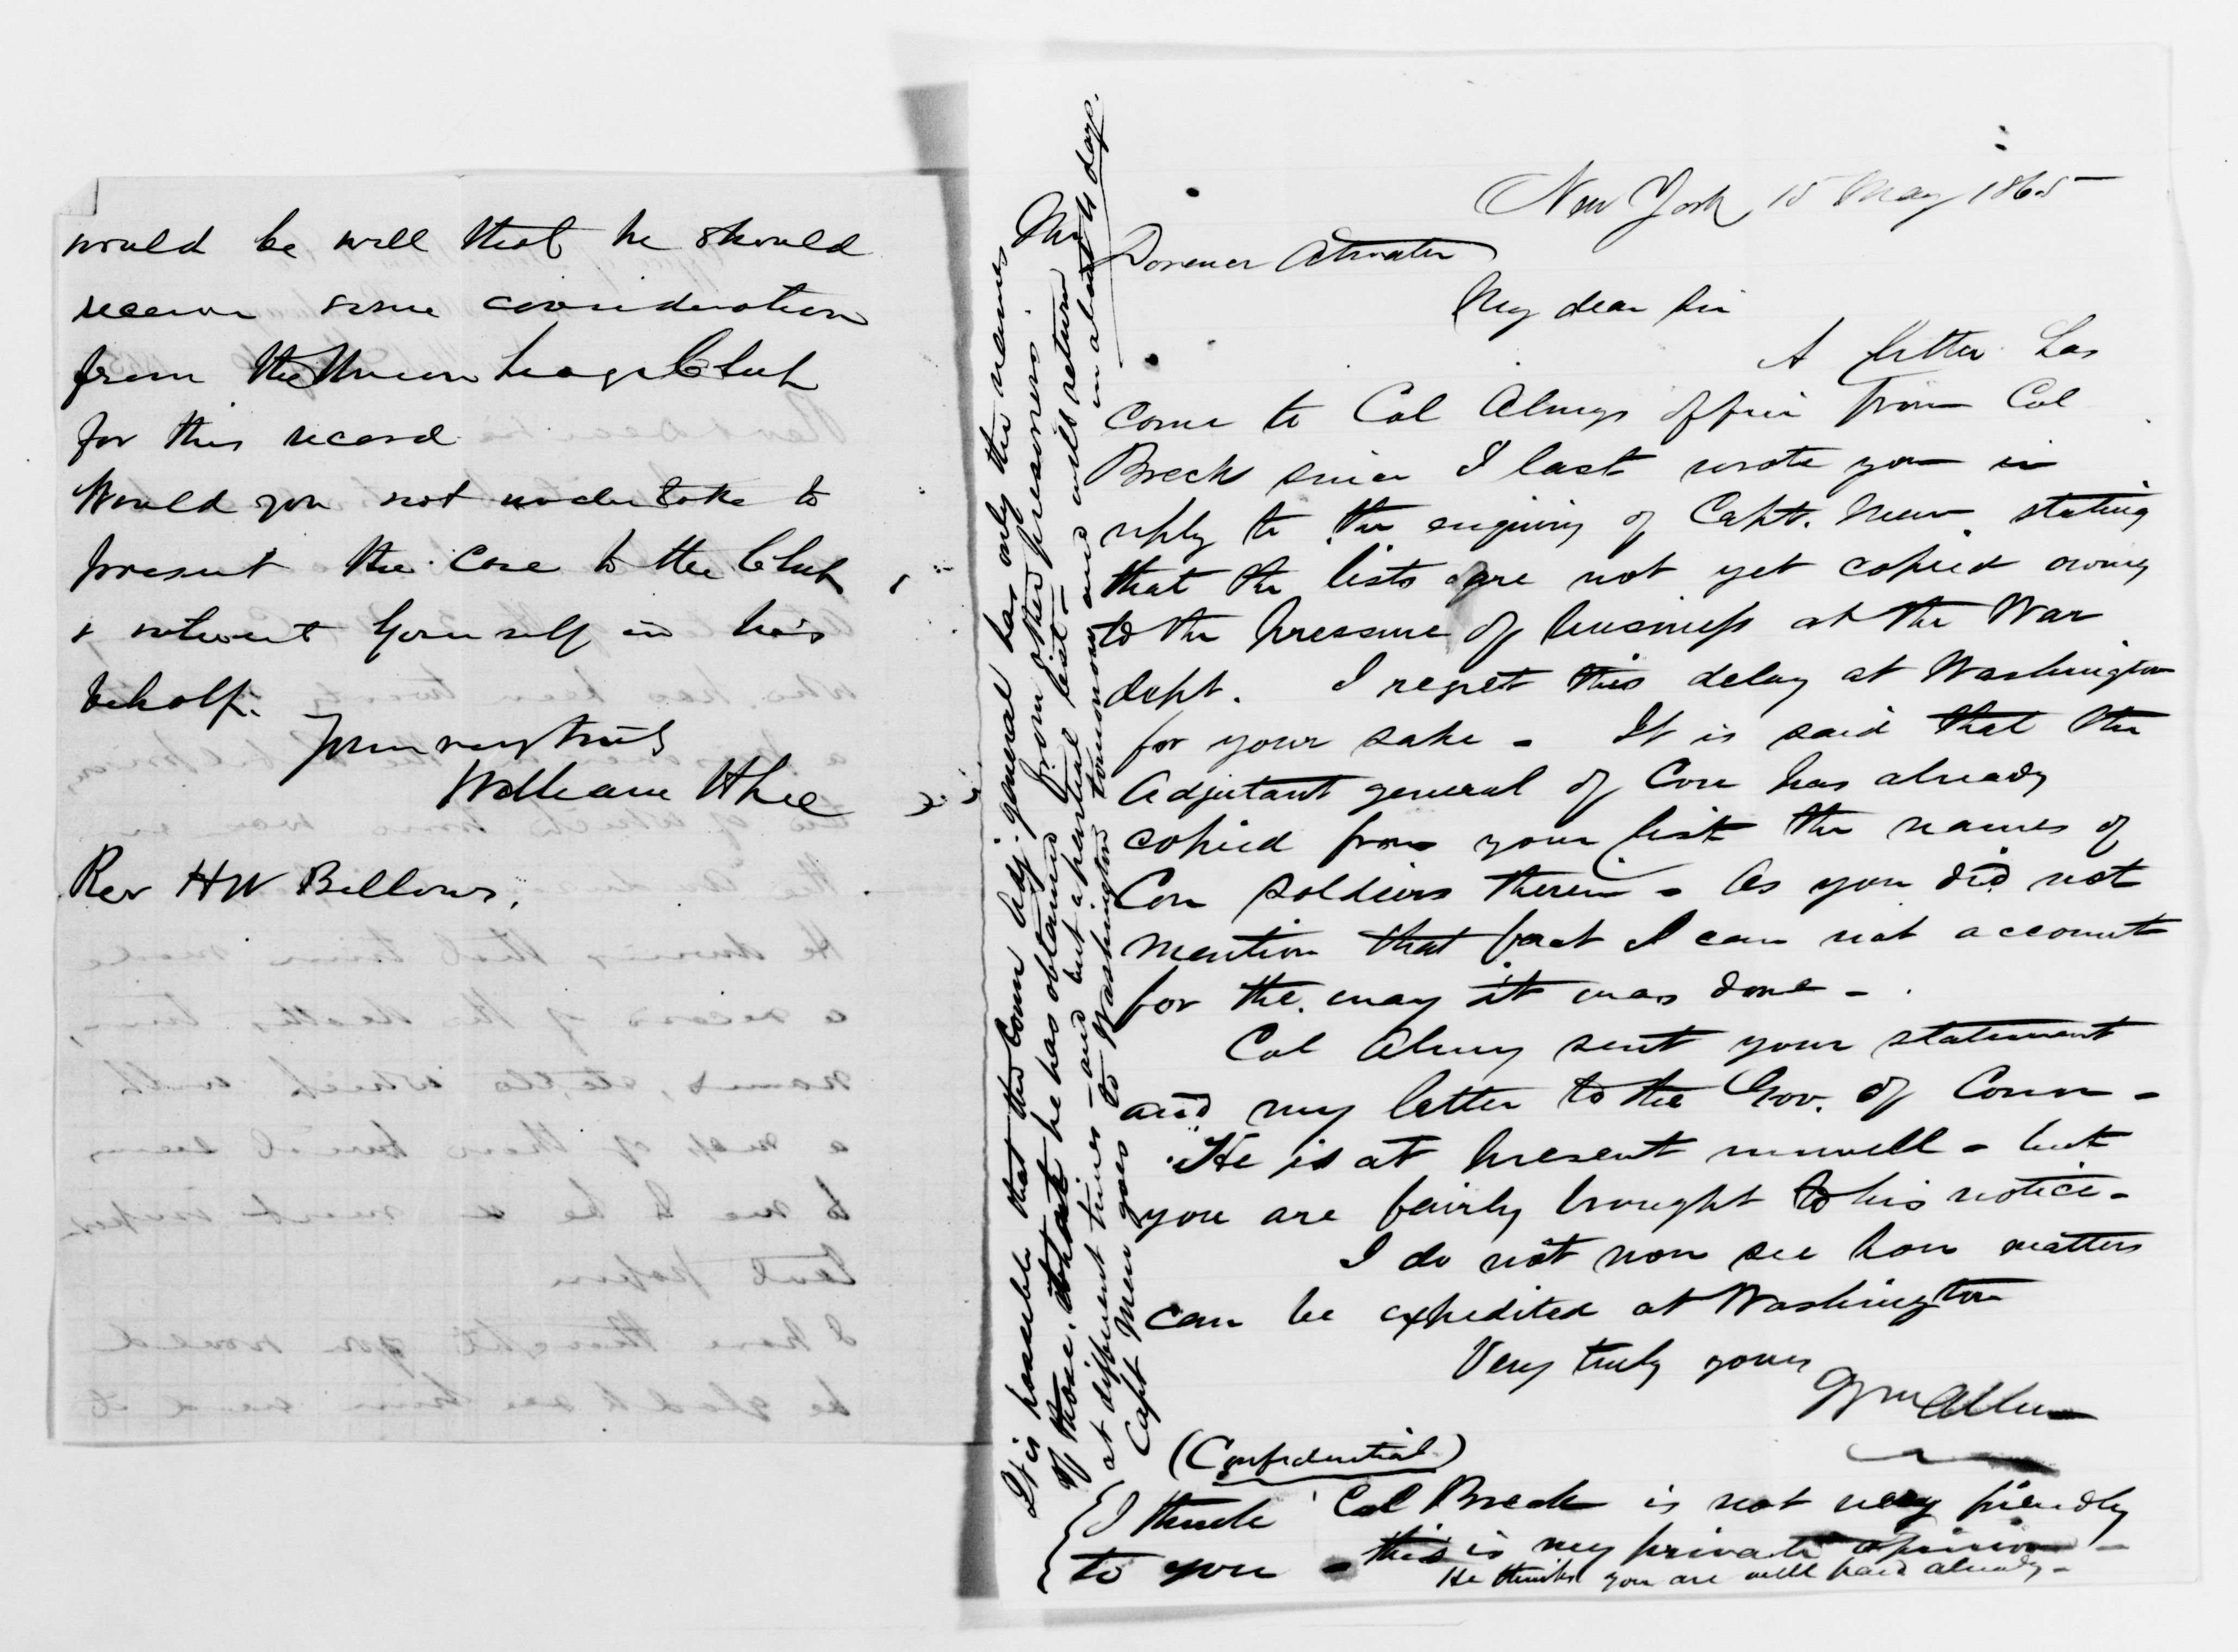 would be well that he should
receive some consideration
from the Union League Club
for this record
Would you not undertake to
present the case to the Club
& interest yourself in his
behalf.
Yours very truly
William H Lee
Rev H W Bellows.
New York 15 May 1865
Mr
Dorence Atwater
My dear Sir
A letter has
come to Col Almys office from Col
Breck since I last wrote you in
reply to the enquiry of Capt. Meuw stating
that the lists are not yet copied owing
to the pressure of business at the War
dept. I regret this delay at Washington
for your sake - It is said that the
Adjutant general of Con has already
copied from your list the names of
Con soldiers therein - As you did not
mention that fact I can not account
for the way it was done -
Col Almy sent your statement
and my letter to the Gov. of Conn -
He is at present unwell - but
you are fairly brought to his notice -
I do not now see how matters
can be expedited at Washington
Very truly yours
Wm Allen
(Confidential)
I think Col Breck is not very friendly
to you - this is my private opinion -
He thinks you are well paid already -
It is possible that the Conn adj. general has only the names
of those, that he has obtained from other prisoners
at different times - and but a partial list -
Capt Meuw goes to Washington tomorrow and will return
in about 4 days.